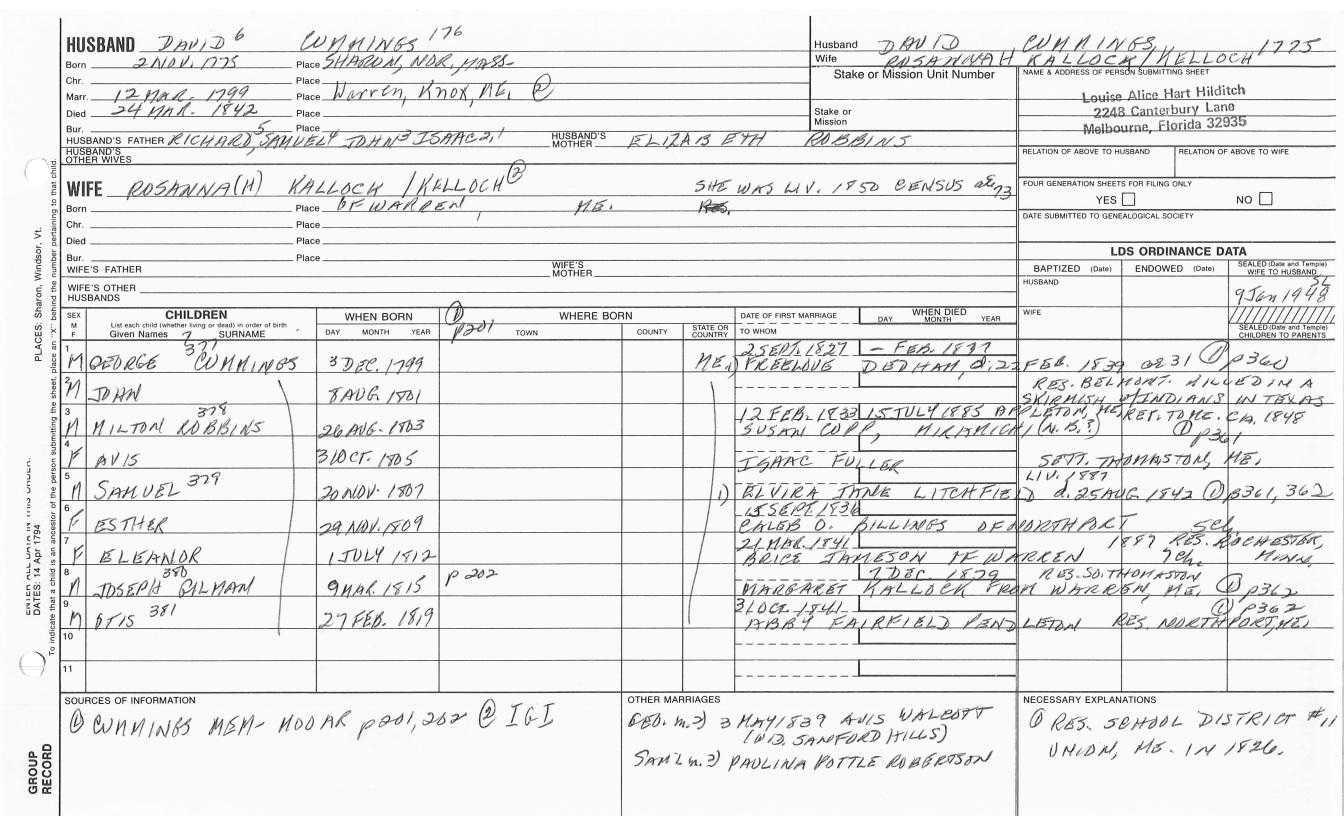 HUSBAND DAVID 6 CUMMINGS 176
Born 2 NOV. 1775 Place SHARON, NOR., MASS-
Chr. Place
Marr. 12 MAR. 1799 Place Warren, Knox, ME. ②
Died 24 MAR. 1842 Place
Bur. Place
HUSBAND'S FATHER RICHARD,5 SAMUEL4 JOHN3 ISAAC2,1 HUSBAND'S MOTHER ELIZABETH ROBBINS
HUSBAND'S OTHER WIVES
Husband DAVID CUMMINGS, 1775
Wife ROSANNAH KALLOCK/KELLOCH
Stake or Mission Unit Number
Stake or Mission
NAME & ADDRESS OF PERSON SUBMITTING SHEET
Louise Alice Hart Hilditch
2248 Canterbury Lane
Melbourne, Florida 32935
RELATION OF ABOVE TO HUSBAND RELATION OF ABOVE TO WIFE
FOUR GENERATION SHEETS FOR FILING ONLY
YES NO
DATE SUBMITTED TO GENEALOGICAL SOCIETY
WIFE ROSANNA(H) KALLOCK /KELLOCH ② SHE WAS LIV. 1850 CENSUS ae 73
Born Place OF WARREN, ME. Res.
Chr. Place
Died Place
Bur. Place
WIFE'S FATHER WIFE'S MOTHER
WIFE'S OTHER HUSBANDS
LDS ORDINANCE DATA
BAPTIZED (Date) ENDOWED (Date) SEALED (Date and Temple) WIFE TO HUSBAND
HUSBAND SL
9 Jan 1948
WIFE
SEALED (Date and Temple) CHILDREN TO PARENTS
SEX M F CHILDREN WHEN BORN ① p201 WHERE BORN DATE OF FIRST MARRIAGE WHEN DIED
List each child (whether living or dead) in order of birth
Given Names 7 SURNAME DAY MONTH YEAR TOWN COUNTY STATE OR COUNTRY TO WHOM DAY MONTH YEAR
1 M GEORGE 377 CUMMINGS 3 DEC. 1799 ME. 2 SEPT. 1827 - FEB. 1837
1) FREELOVE DEDHAM, d. 22 FEB. 1839 ae 31 ① p360
2 M JOHN 8 AUG 1801 RES. BELMONT. KILLED IN A
SKIRMISH w/INDIANS IN TEXAS
3 M MILTON 378 ROBBINS 26 AUG. 1803 12 FEB. 1833 15 JULY 1885 APPLETON, ME, RET. TO ME. CA. 1848
SUSAN COPP, MIRAMICHI (N.B.?) ① p361
4 F AVIS 31 OCT. 1805 ISAAC FULLER SETT. THOMASTON, ME.
LIV. 1887
5 M SAMUEL 379 20 NOV. 1807 1) ELVIRA JANE LITCHFIELD d. 25 AUG 1842 ① p361, 362
6 F ESTHER 29 NOV. 1809 15 SEPT. 1836
CALEB O. BILLINGS OF NORTHPORT 5ch.
7 F ELEANOR 1 JULY 1812 21 MAR. 1841 1887 RES. ROCHESTER,
BRICE JAMESON OF WARREN 7ch. MINN.
8 M JOSEPH 380 GILMAN 9 MAR. 1815 p 202 7 DEC. 1879 RES. SO. THOMASTON
MARGARET KALLOCK FROM WARREN, ME. ① p362
9 M OTIS 381 27 FEB. 1819 31 OCT. 1841 ① p362
ABBY FAIRFIELD PENDLETON RES. NORTHPORT, ME.
10
11
SOURCES OF INFORMATION
① CUMMINGS MEM- MOOAR p201,202 ② IGI
OTHER MARRIAGES
GEO. m. 2) 3 MAY 1839 AVIS WALCOTT
(WID. SANFORD HILLS)
SAM'L m. 2) PAULINA POTTLE ROBERTSON
NECESSARY EXPLANATIONS
① RES. SCHOOL DISTRICT #11
UNION, ME. IN 1826.
PLACES: Sharon, Windsor, Vt.
DATES: 14 Apr 1794
To indicate that a child is an ancestor of the person submitting the sheet, place an "X" behind the number pertaining to that child.
GROUP RECORD